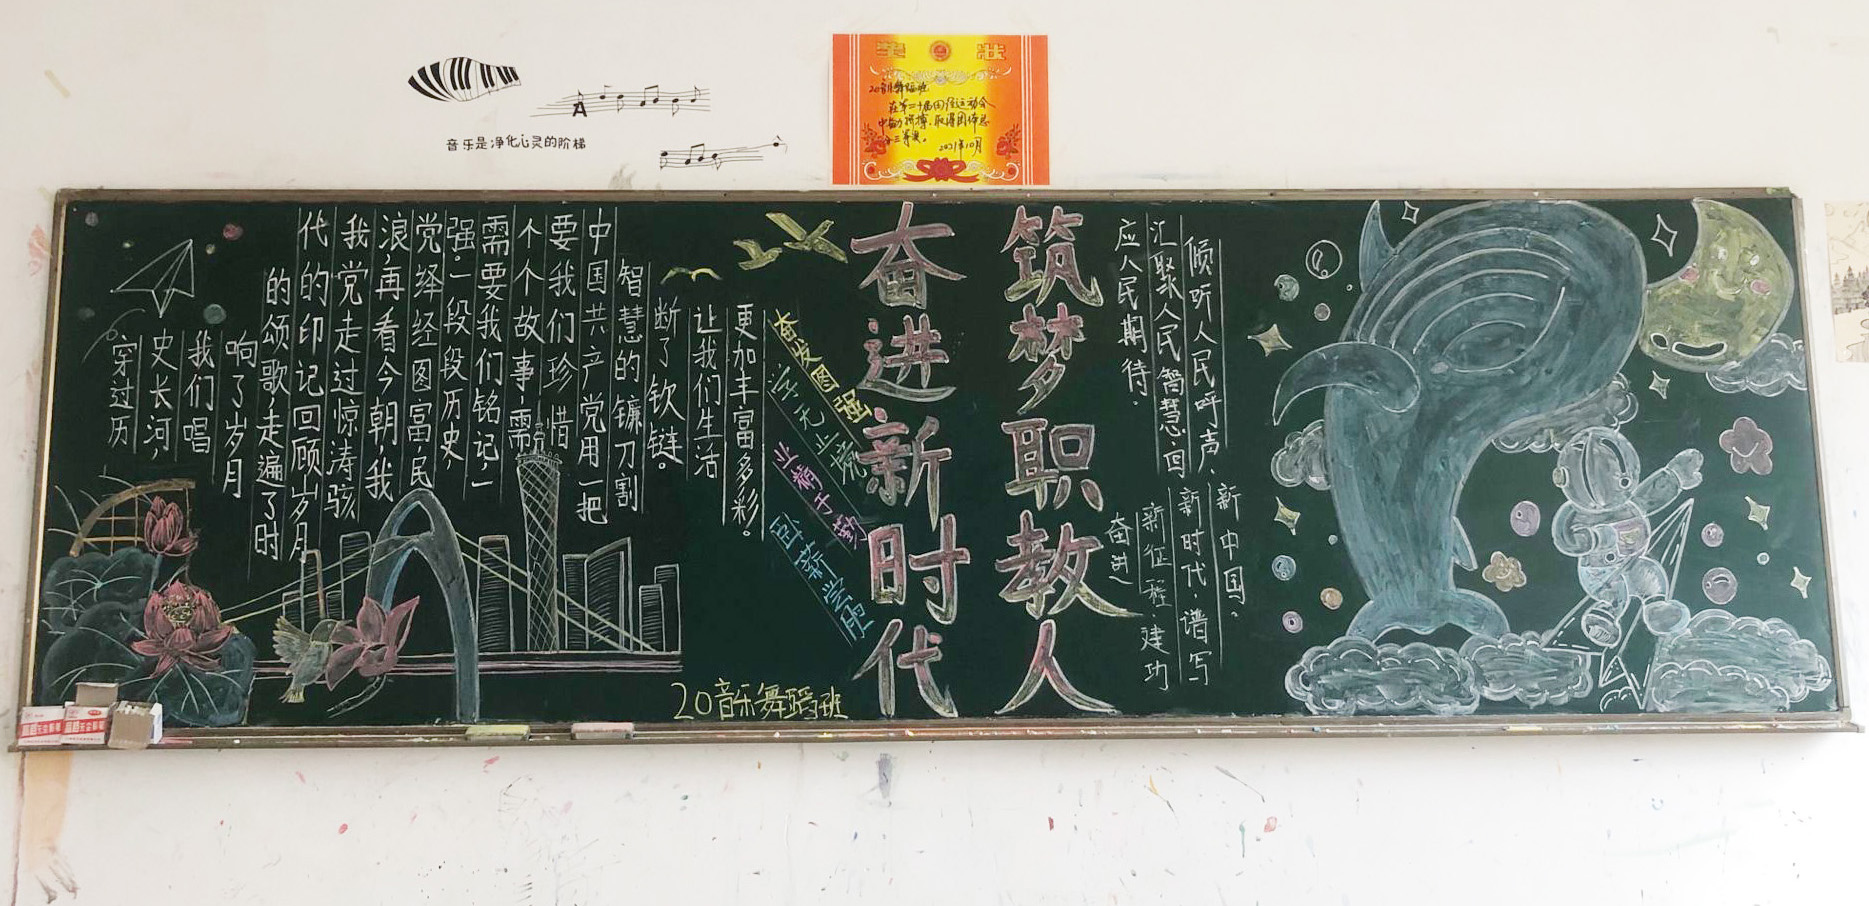 音乐是净化心灵的阶梯
奖状
20音乐舞蹈班
在第二十届田径运动会
中奋力拼搏，取得团体总
分三等奖。
2021年10月
穿过历
史长河，
我们唱
响了岁月
的颂歌，走遍了时
代的印记回顾岁月
我党走过惊涛骇
浪，再看今朝，我
党绎经图富，民
强。一段段历史，
需要我们铭记，一
个个故事，需
要我们珍惜
中国共产党用一把
智慧的镰刀割
断了钦链。
让我们生活
更加丰富多彩。
奋发图强
学无止境
业精于勤
卧薪尝胆
20音乐舞蹈班
筑梦职教人
奋进新时代
倾听人民呼声、
汇聚人民智慧，回
应人民期待.
奋进
新征程 建功
新时代，谱写
新中国。